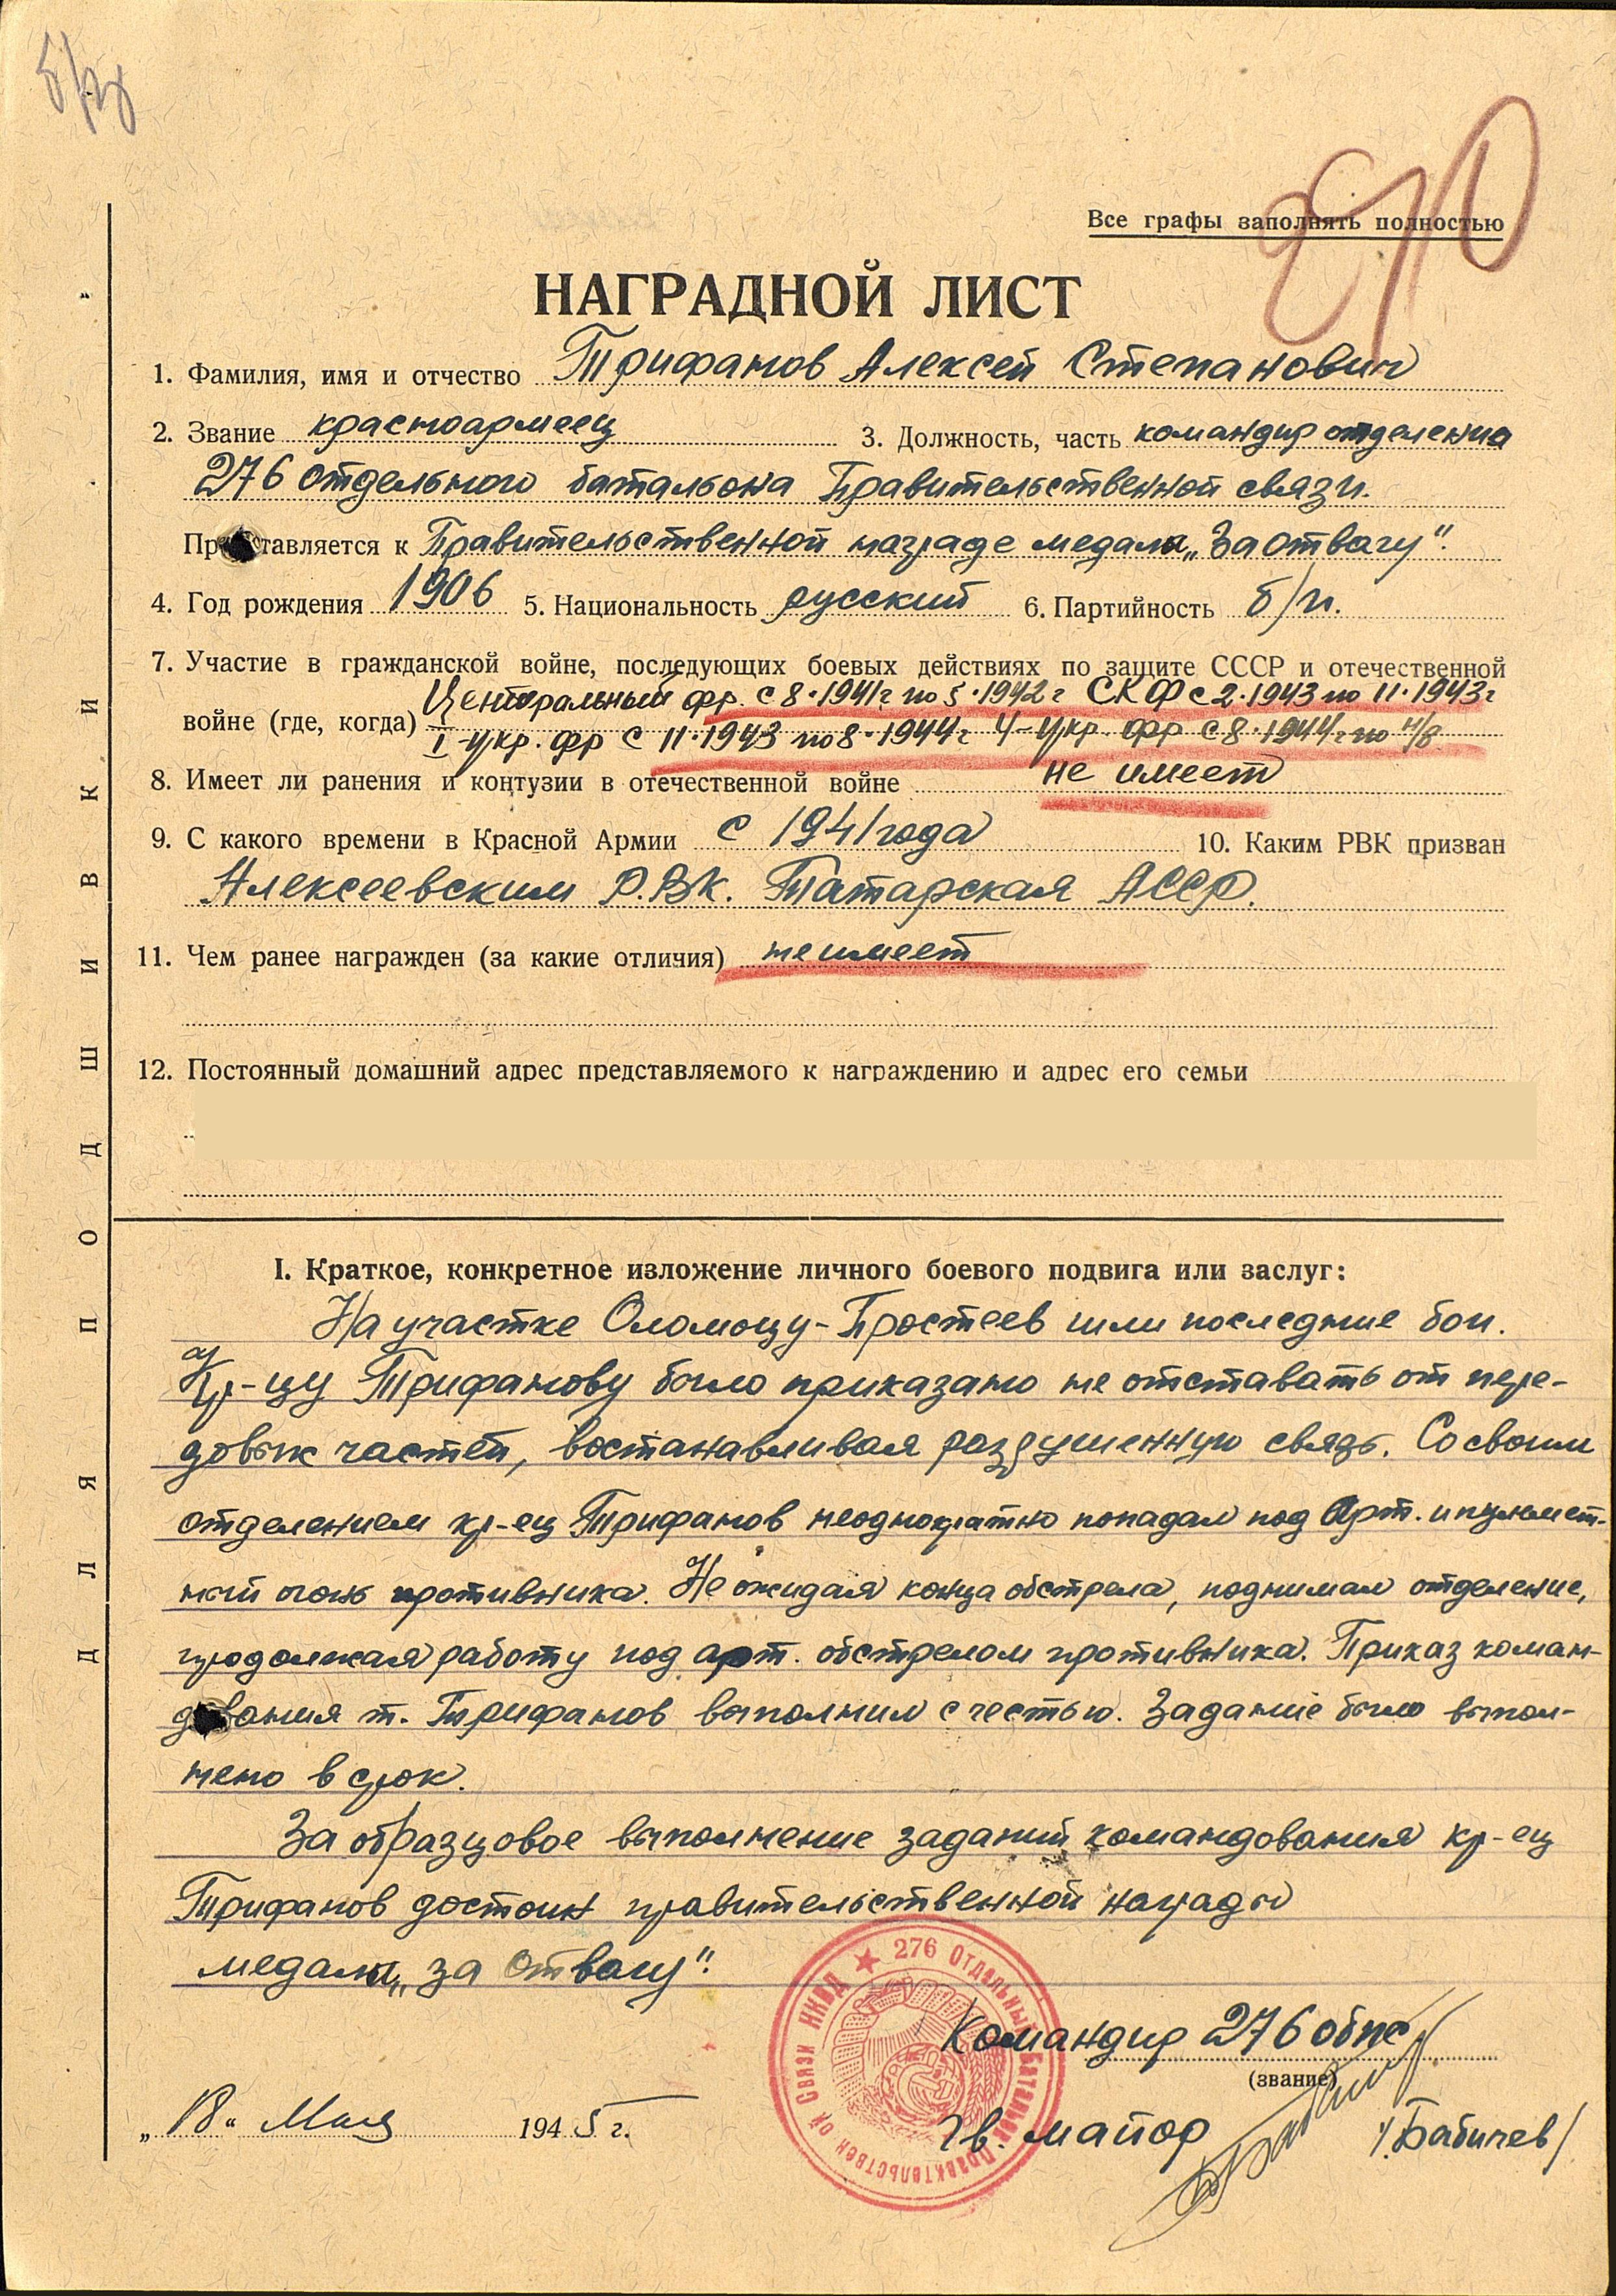 Все графы заполнять полностью
НАГРАДНОЙ ЛИСТ
1. Фамилия, имя и отчество Трифанов Алексей Степанович
2. Звание красноармеец 3. Должность, часть командир отделения
276 отдельного батальона Правительственной связи.
Представляется к Правительственной награде медали „За отвагу".
4. Год рождения 1906 5. Национальность русский 6. Партийность б/п.
7. Участие в гражданской войне, последующих боевых действиях по защите СССР и отечественной
Центральный фр. с 8.1941г по 5.1942г СКФ с 2.1943 по 11.1943г
войне (где, когда) I-укр. фр с 11.1943 по 8.1944г 4-Укр. фр с 8.1944г по н/в
8. Имеет ли ранения и контузии в отечественной войне не имеет
9. С какого времени в Красной Армии с 1941 года 10. Каким РВК призван
Алексеевским Р.В.К. Татарская АССР.
11. Чем ранее награжден (за какие отличия) не имеет
12. Постоянный домашний адрес представляемого к награждению и адрес его семьи
I. Краткое, конкретное изложение личного боевого подвига или заслуг:
На участке Оломоуц-Простеев шли последние бои.
Кр-цу Трифанову было приказано не отставать от пере-
довых частей, востанавливая разрушенную связь. Со своим
отделением кр-ец Трифанов неоднократно попадал под Арт. и пулемет-
ный огонь противника. Не ожидая конца обстрела, поднимал отделение,
продолжая работу под арт. обстрелом противника. Приказ коман-
дования т. Трифанов выполнил с честью. Задание было выпол-
нено в срок.
За образцовое выполнение заданий командования кр-ец
Трифанов достоин правительственной награды
медали „за отвагу".
276 Отдельный Батальон Правительственной Связи НКВД
Командир 276 обпс
(звание)
„18" Мая 1945 г.
Гв. майор /Бабичев/
ДЛЯ ПОДШИВКИ